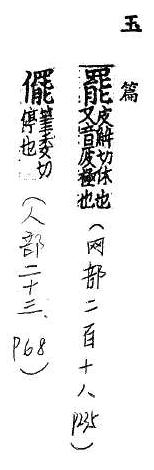 玉篇
罷 皮解切休也
又音疲極也
(网部二百十八 P235)
筆委切
停也
(人部二十三、P68)